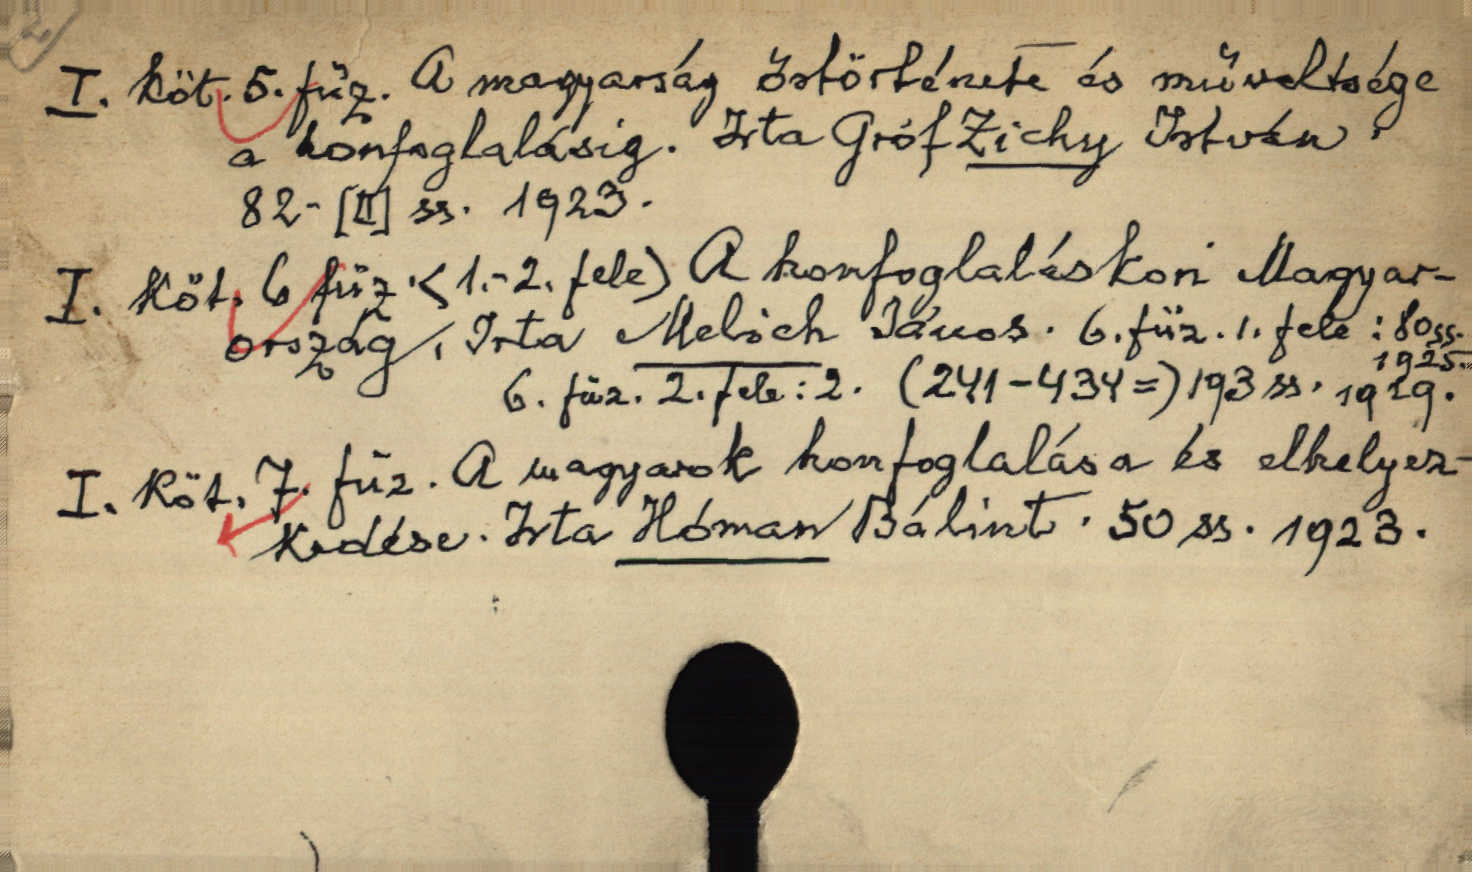 2
I. Köt. 5. füz. A magyarság őstörténete és műveltsége
a honfoglalásig. Irta Gróf Zichy István.
82-[II] ss. 1923.
I. Köt. 6 füz. <1.-2. fele) A honfoglaláskori Magyar-
ország. Irta Melich János. 6. füz. 1. fele: 80 ss.
1925.
6. füz. 2. fele: 2. (241-434=) 193 ss. 1929.
I. Köt. 7. füz. A magyarok honfoglalása és elhelyez-
kedése. Irta Hóman Bálint. 50 ss. 1923.